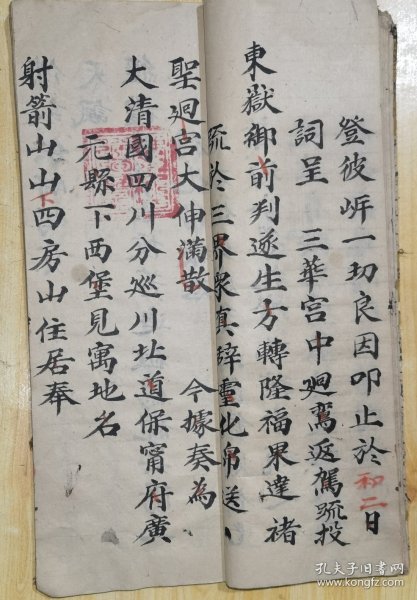 登彼岸一切良因叩止於和二日
詞呈 三華宫中廻鸞返駕䟽投
東嶽御前判逐生方轉隆福果達禇
䟽於三界衆真辞靈化帛送
聖廻宫大伸滿散 今據奏為
大清國四川分巡川北道保甯府廣
元縣下西堡見寓地名
射箭山山下四房山住居奉
孔夫子旧书网
www.kongfz.com